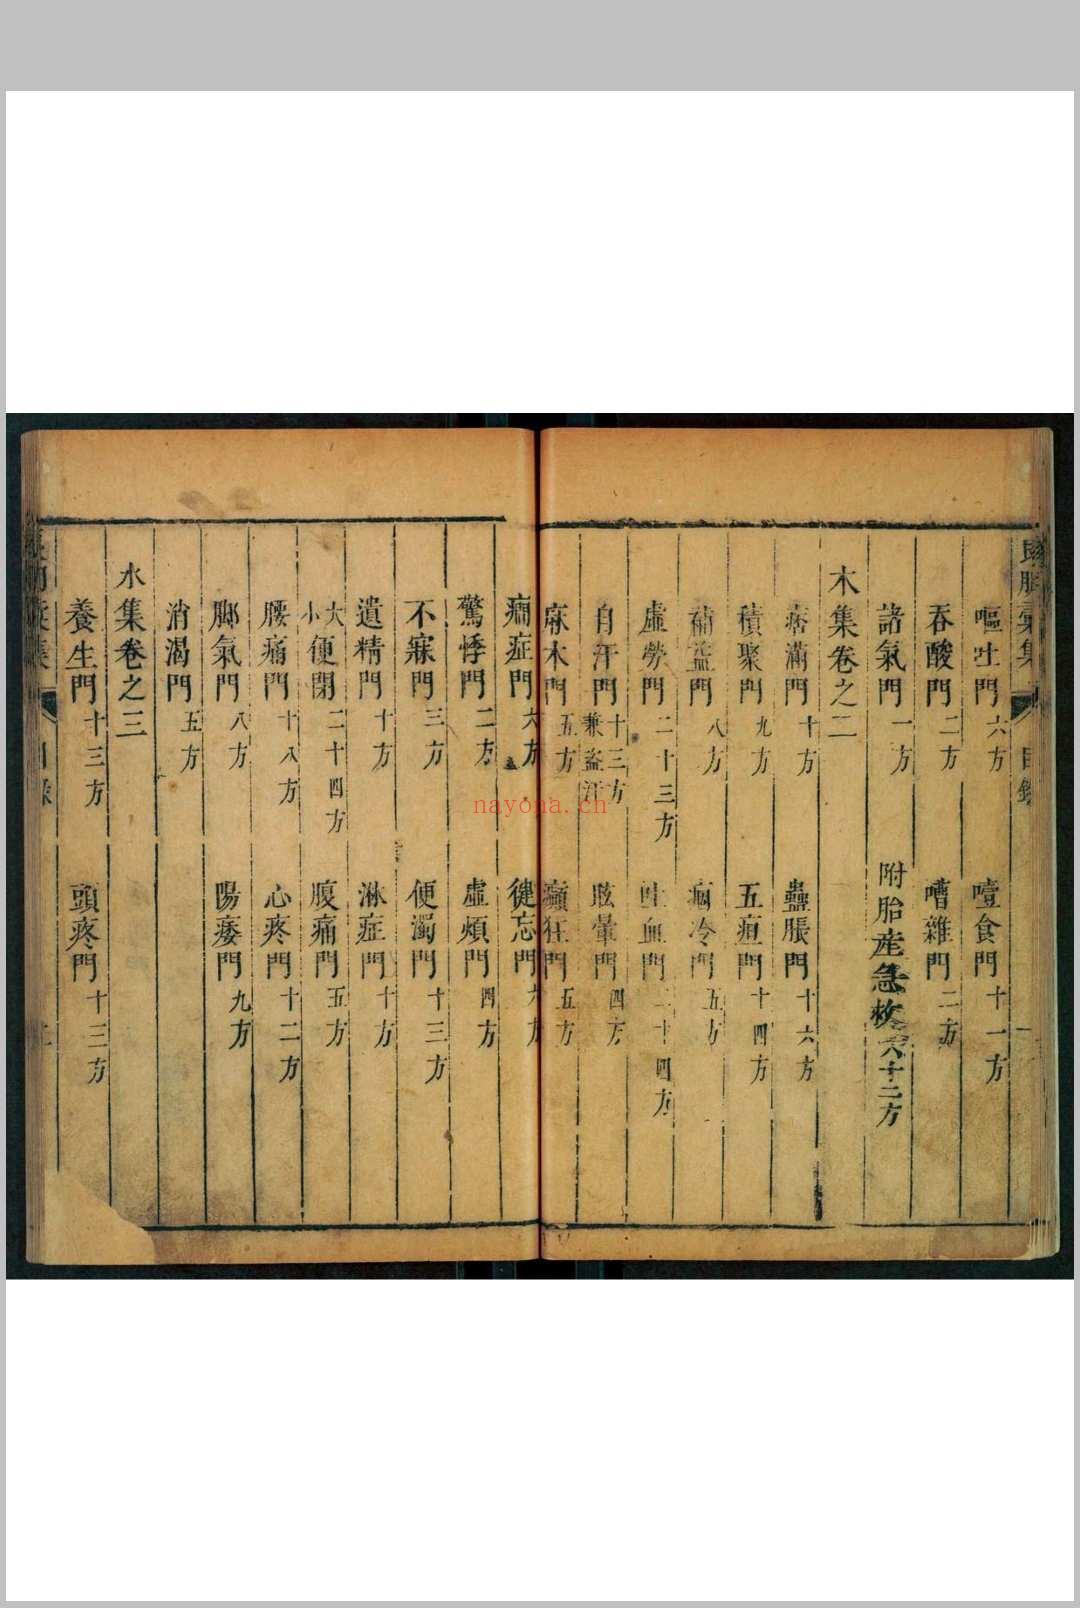 嘔吐門六方 噎食門十一方
吞酸門二方 嘈雜門二方
諸氣門一方 附胎産急救六十二方
木集卷之二
痞滿門十方 蠱脹門十六方
積聚門九方 五疸門十四方
補益門八方 痼冷門五方
虛勞門二十三方 吐血門二十四方
自汗門十三方兼盜汗 眩暈門四方
麻木門五方 癲狂門五方
癇症門六方 健忘門六方
驚悸門二方 虛煩門四方
不寐門三方 便濁門十三方
遺精門十方 淋症門十方
大小便閉二十四方 腹痛門五方
腰痛門十八方 心疼門十二方
腳氣門八方 陽痿門九方
消渴門五方
水集卷之三
養生門十三方 頭疼門十三方
目錄
nayona.cn